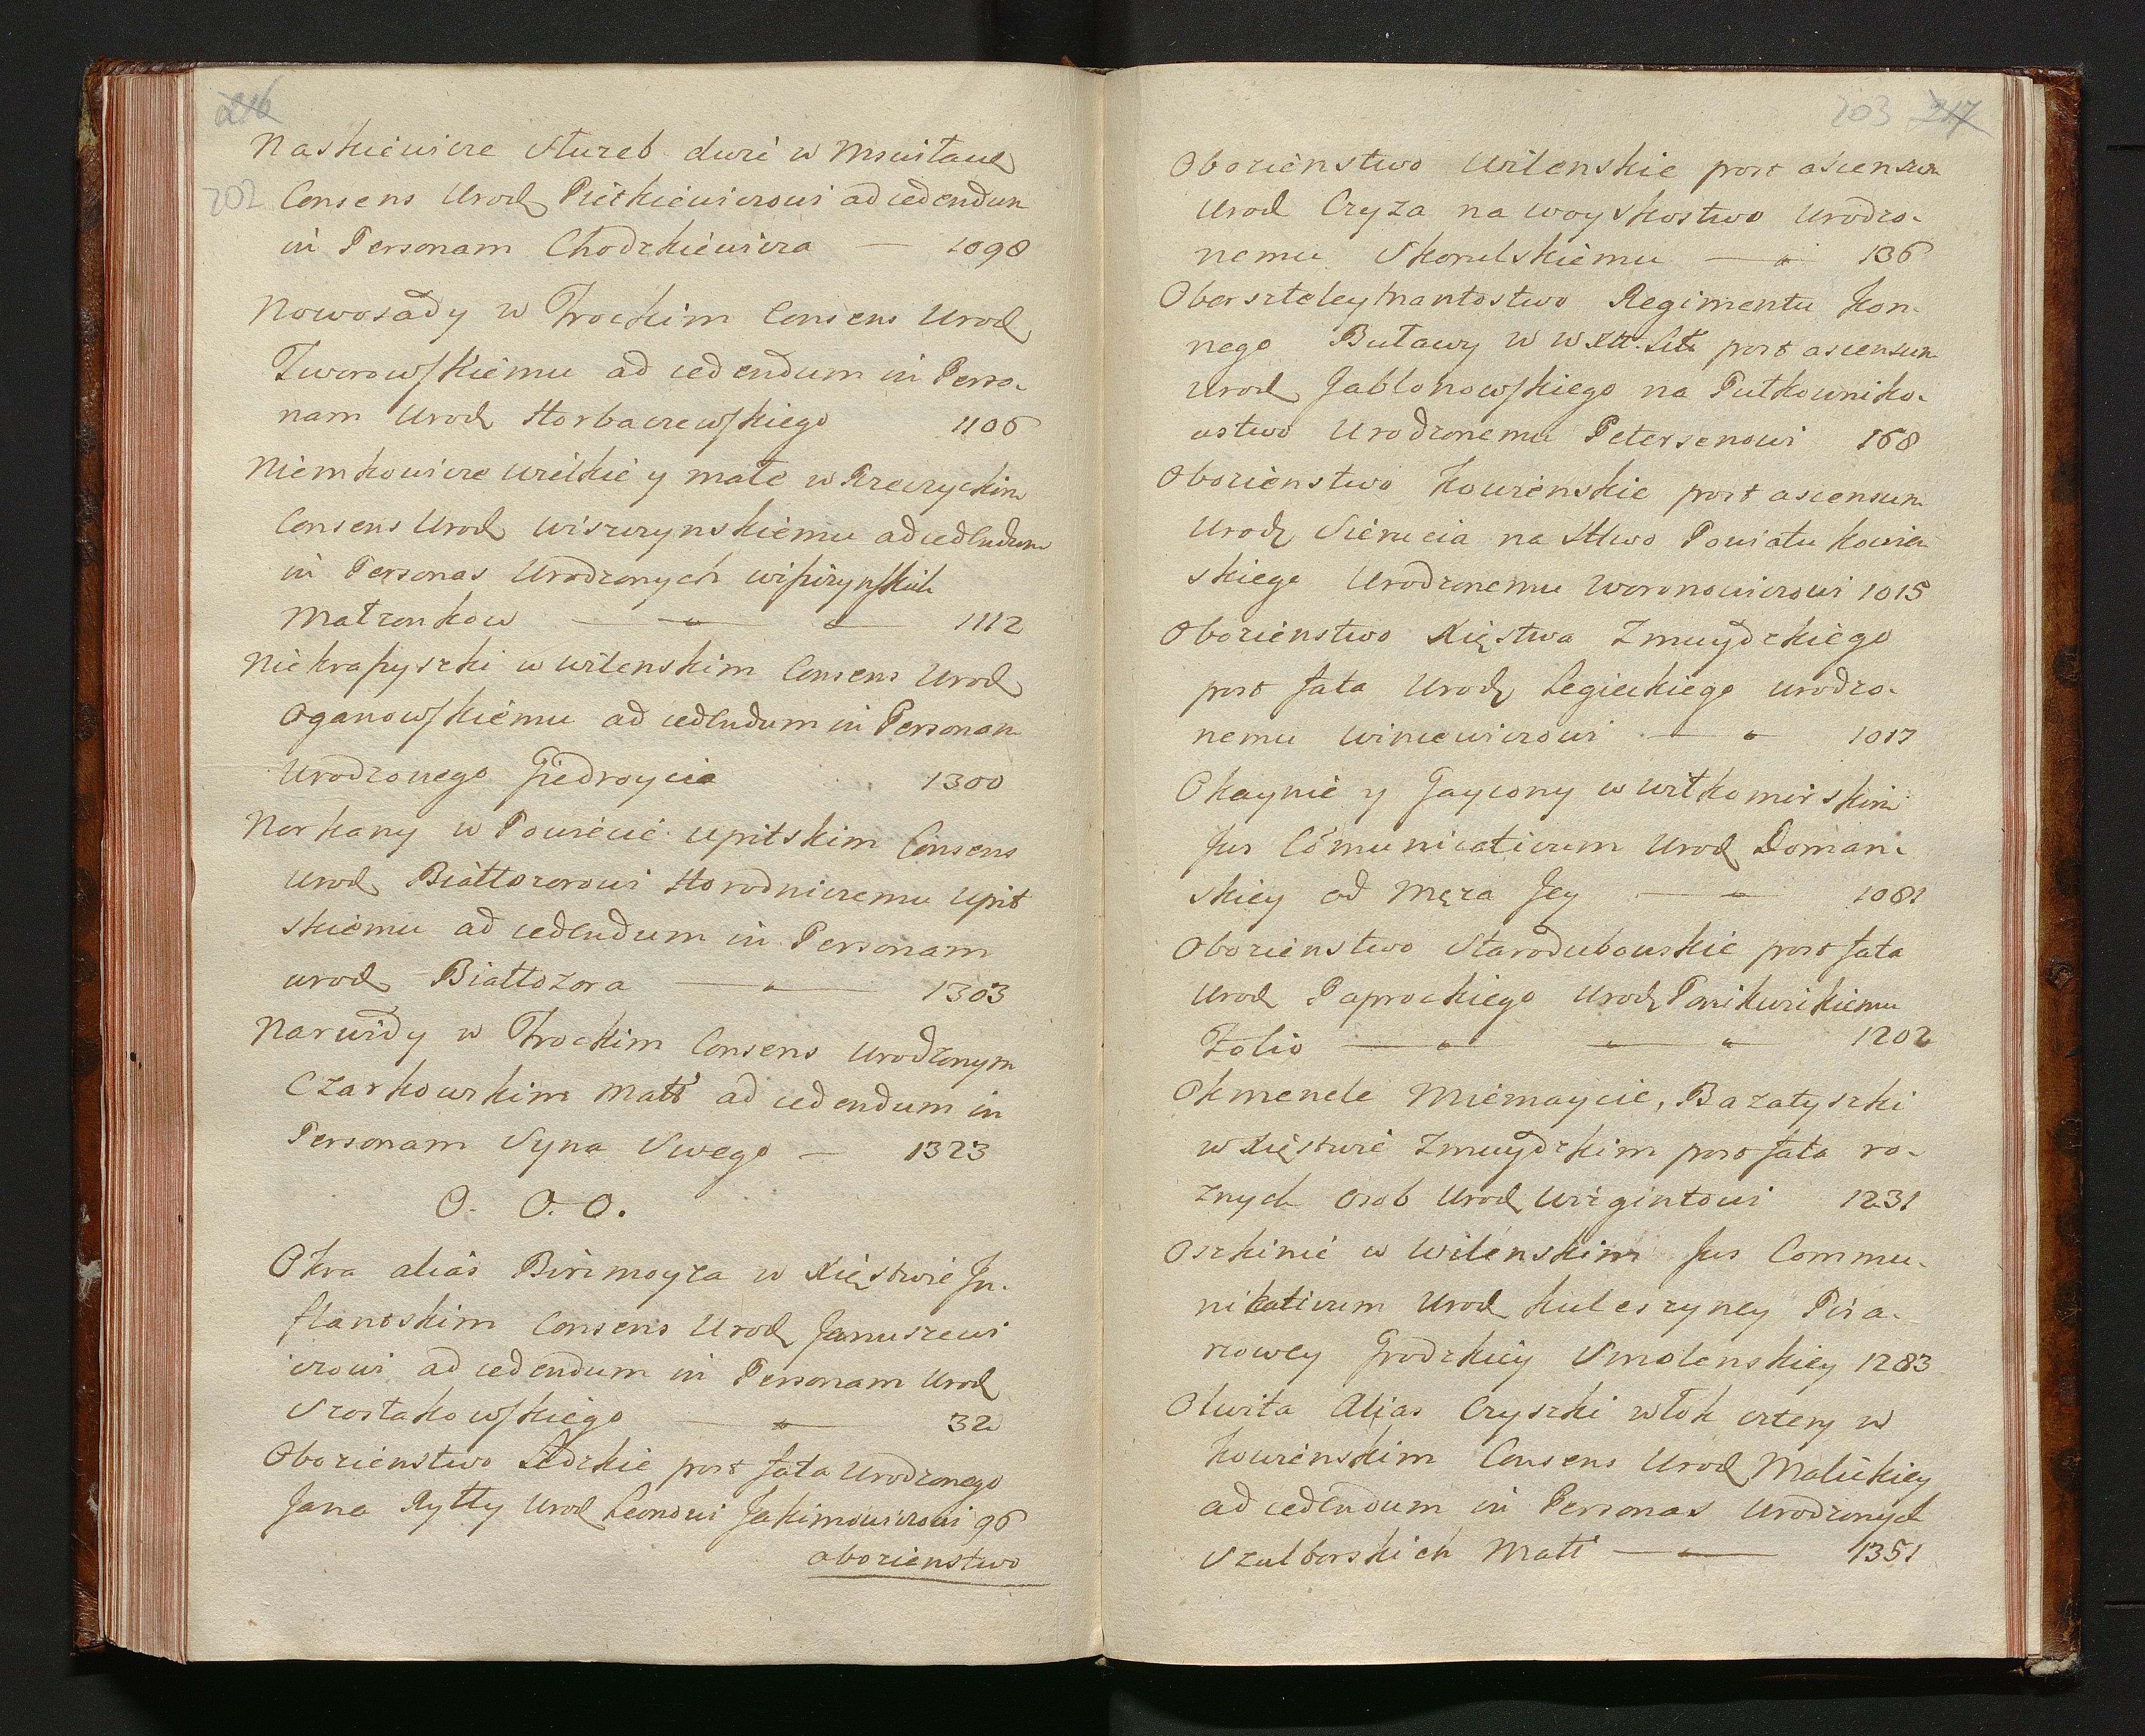 216
202
Naskiewicze Służeb. dwie w Mscisław
Consens Urodz Pietkiewiczowi ad cedendum
in Personam Chodzkiewicza — 1098
Nowosady w Trockim Consens Urodz
Tworowskiemu ad cedendum in Perso-
nam Urodz Horbaczewskiego 1106
Niemkowicze wielkie y małe w Rzeczyckim
Consens Urodz Wiszczynskiemu ad cedendum
in Personas Urodzonych
Małżonkow — " — " — 1112
Niekrapyszki w Wilenskim Consens Urodz
Oganowskiemu ad cedendum in Personam
Urodzonego Giedroycia 1300
Norkany w Powiecie Upitskim Consens
Urodz Białłozorowi Horodniczemu Upit
skiemu ad cedendum in Personam
Urodz Białłozora — " — 1303
Narwidy w Trockim Consens Urodzonym
Czarkowskim Małż ad cedendum in
Personam Syna Swego — 1323
O. O. O.
Okra alias Birimoyza w Xięstwie In-
flantskim Consens Urodz Januszewi
czowi ad cedendum in Personam Urodz
Szostakowskiego — " — 32
Obozienstwo Lidzkie post fata Urodzonego
Jana Rylly Urodz Leonowi Jakimowiczowi 96
obozienstwo
203 217
Obozienstwo Wilenskie post ascensum
Urodz Czyza na Woyskostwo Urodzo-
nemu Skorulskiemu — " 136
Oberszteleytnantostwo Regimentu Kon-
nego Buławy W W.X.Litt. post ascensum
Urodz Jabłonowskiego na Pułkowniko-
wstwo Urodzonemu Petersenowi 168
Obozienstwo Kowienskie post ascensum
Urodz Sierucia na Sttwo Powiatu Kowien
skiego Urodzonemu Woronowiczowi 1015
Obozienstwo Xięstwa Zmuydzkiego
post fata Urodz Legieckiego Urodzo-
nemu Wincewiczowi — " 1017
Okaynie y Gaycony w Wiłkomirskim
Jus Cōmunicativum Urodz Doman-
skiey od Męza Jey — " — 1081
Obozienstwo Starodubowskie post fata
Urodz Paprockiego Urodz
Folio — " — " — " — 1202
Okmenele Miemaycie, Bazałyszki
w Xięstwie Zmuydzkim post fata ro-
znych osob Urodz Wizgintowi 1231
Oszkinie w Wilenskim Jus Commu-
nikativum Urodz Kuleszyney Pisa-
rzowey Grodzkiey Smolenskiey 1283
Olwita Alias Czyszki włok cztery w
Kowienskim Consens Urodz Malickiey
ad cedendum in Personas Urodzonych
Szulborskich Małż — " — 1351